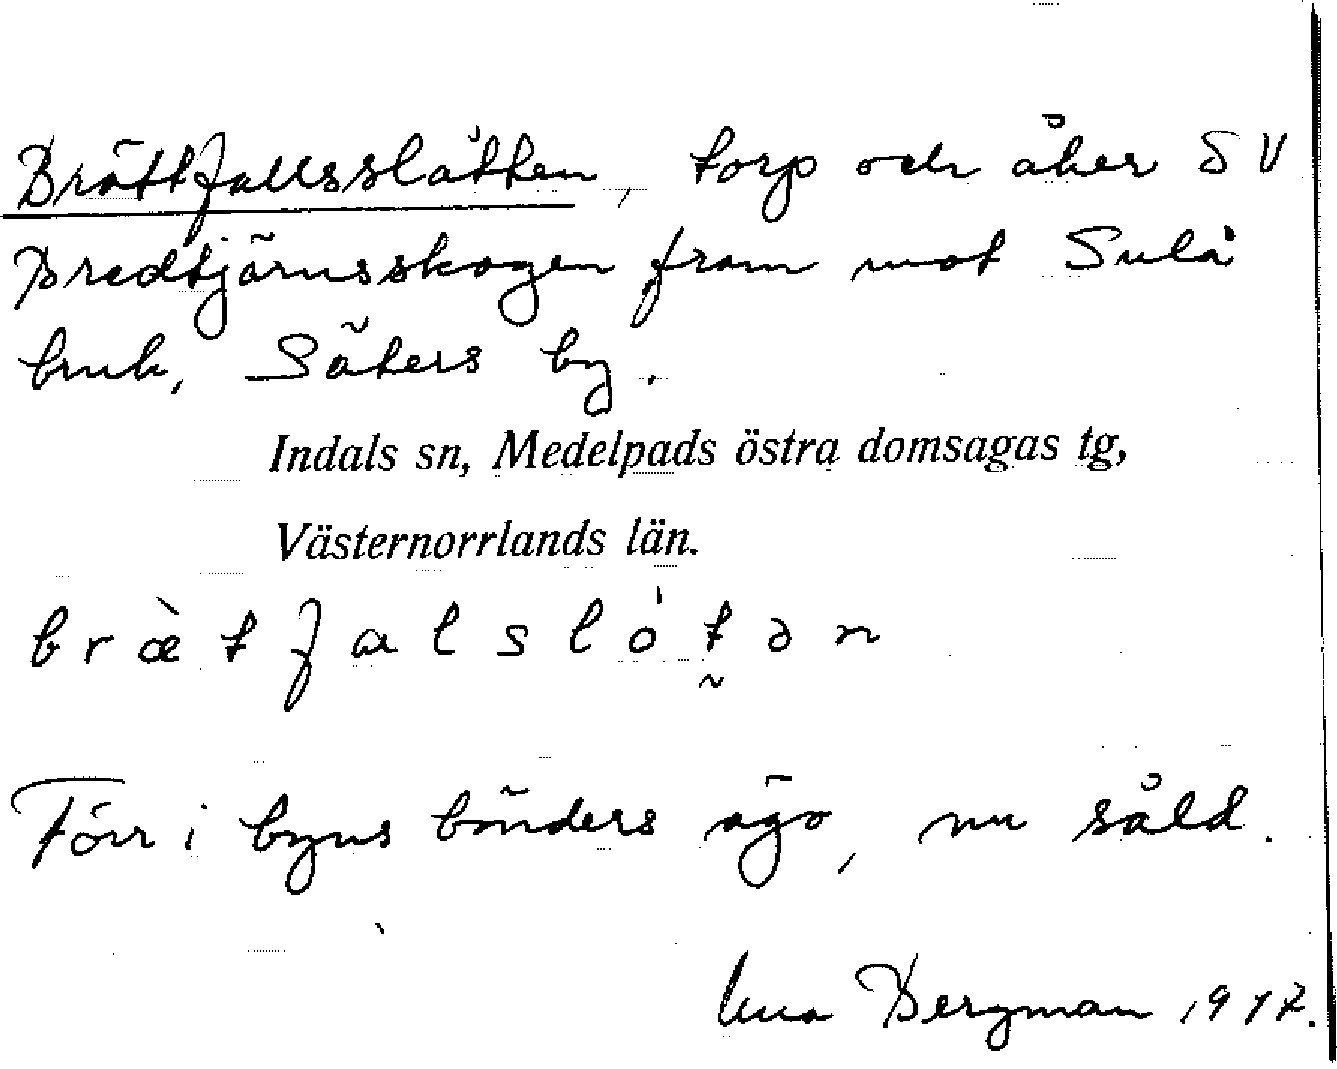 Brättfallsslåtten, torp och åker SV
Bredtjärnsskogen fram mot Sulå
bruk, Säters by.
Indals sn, Medelpads östra domsagas tg,
Västernorrlands län.
bræ̀tfalslótən
Förr i byns bönders ägo, nu såld.
Bergman